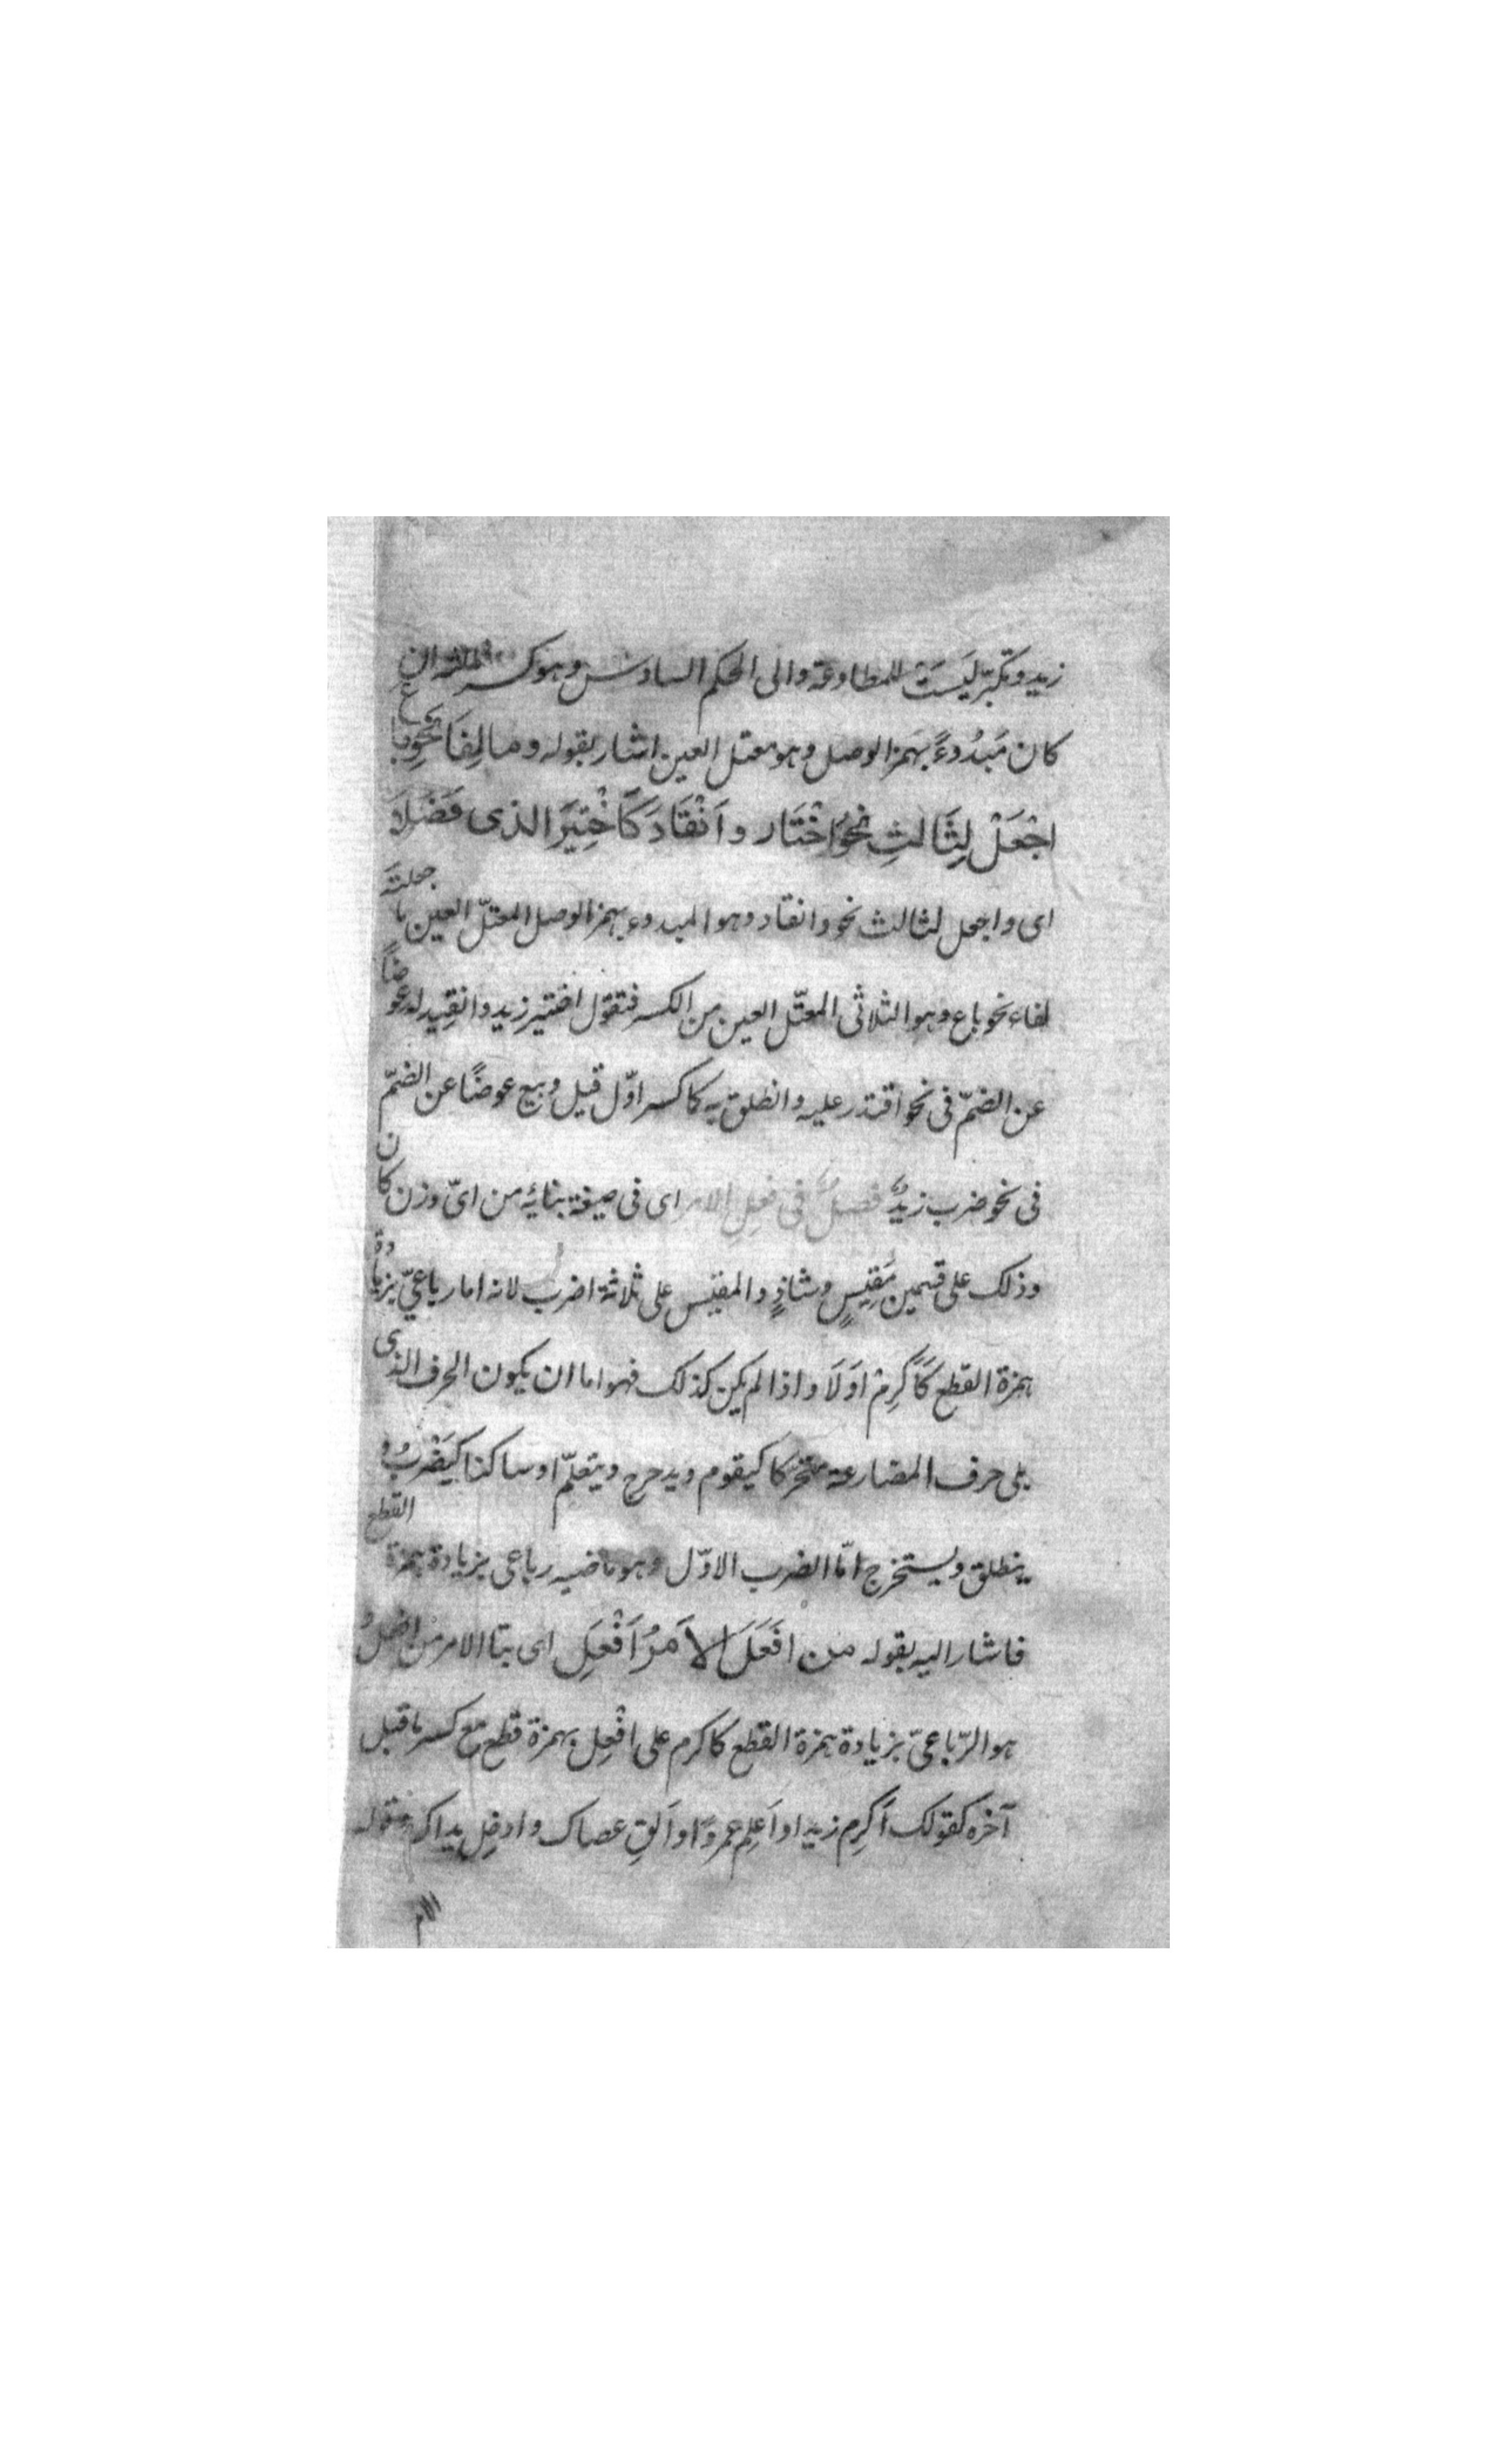 زيد وتكبّر لَيسَت للمطاوعة والى الحكم السادس وهو كسر ثالثه ان
كان مَبدُوءً بهمز الوصل وهو معتل العين اشار بقوله وما لِفَا نَحوِ باع
اجْعَلْ لِثَالثِ نحو اخْتَار وَانْقَادَ كَاخْتِيرَ الذى فَضُلَا
اى واجعل لثالث نحو وانقاد وهو المبدوء بهمز الوصل المعتلّ العين ما جعلتَه
لفاء نحو باع وهو الثلاثى المعتّل العين من الكسر فتقول اختير زيد وانقِيد له عوضًا
عن الضمّ فى نحو اقتدر عليه وانطلق به كما كسر اوّل قيل وبيع عوضًا عن الضمّ
فى نحو ضرب زيدٌ فصلٌ فى فعلِ الامر اى فى صيغة بنائه من اىّ وزن كان
وذلك على قسمين مَقِيسٍ وشاذٍ والمقيس على ثلاثة اضرب لانه اما رباعىّ بزيادة
همزة القطع كَاكرِمْ اوَلَا واذا لم يكن كذلك فهو اما ان يكون الحرف الذى
يلى حرف المضارعة متحرّكا كيقوم ويدحرج ويتعلّم او ساكنا كيَضْربُ و
ينطلق ويستخرج امّا الضرب الاوّل وهو ماضيه رباعى بزيادة همزة القطع
فاشار اليه بقوله من افَعَلَ الاَمرُ اَفْعِل اى بنا الامر من افعلُ
هو الرّباعىّ بزيادة همزة القطع كاكرم على افْعِل بهمزة قطع مع كسر ما قبل
آخره كقولك اَكرِم زيدا واَعلِم عمروًا واَلقِ عصاك وادخِل يداك